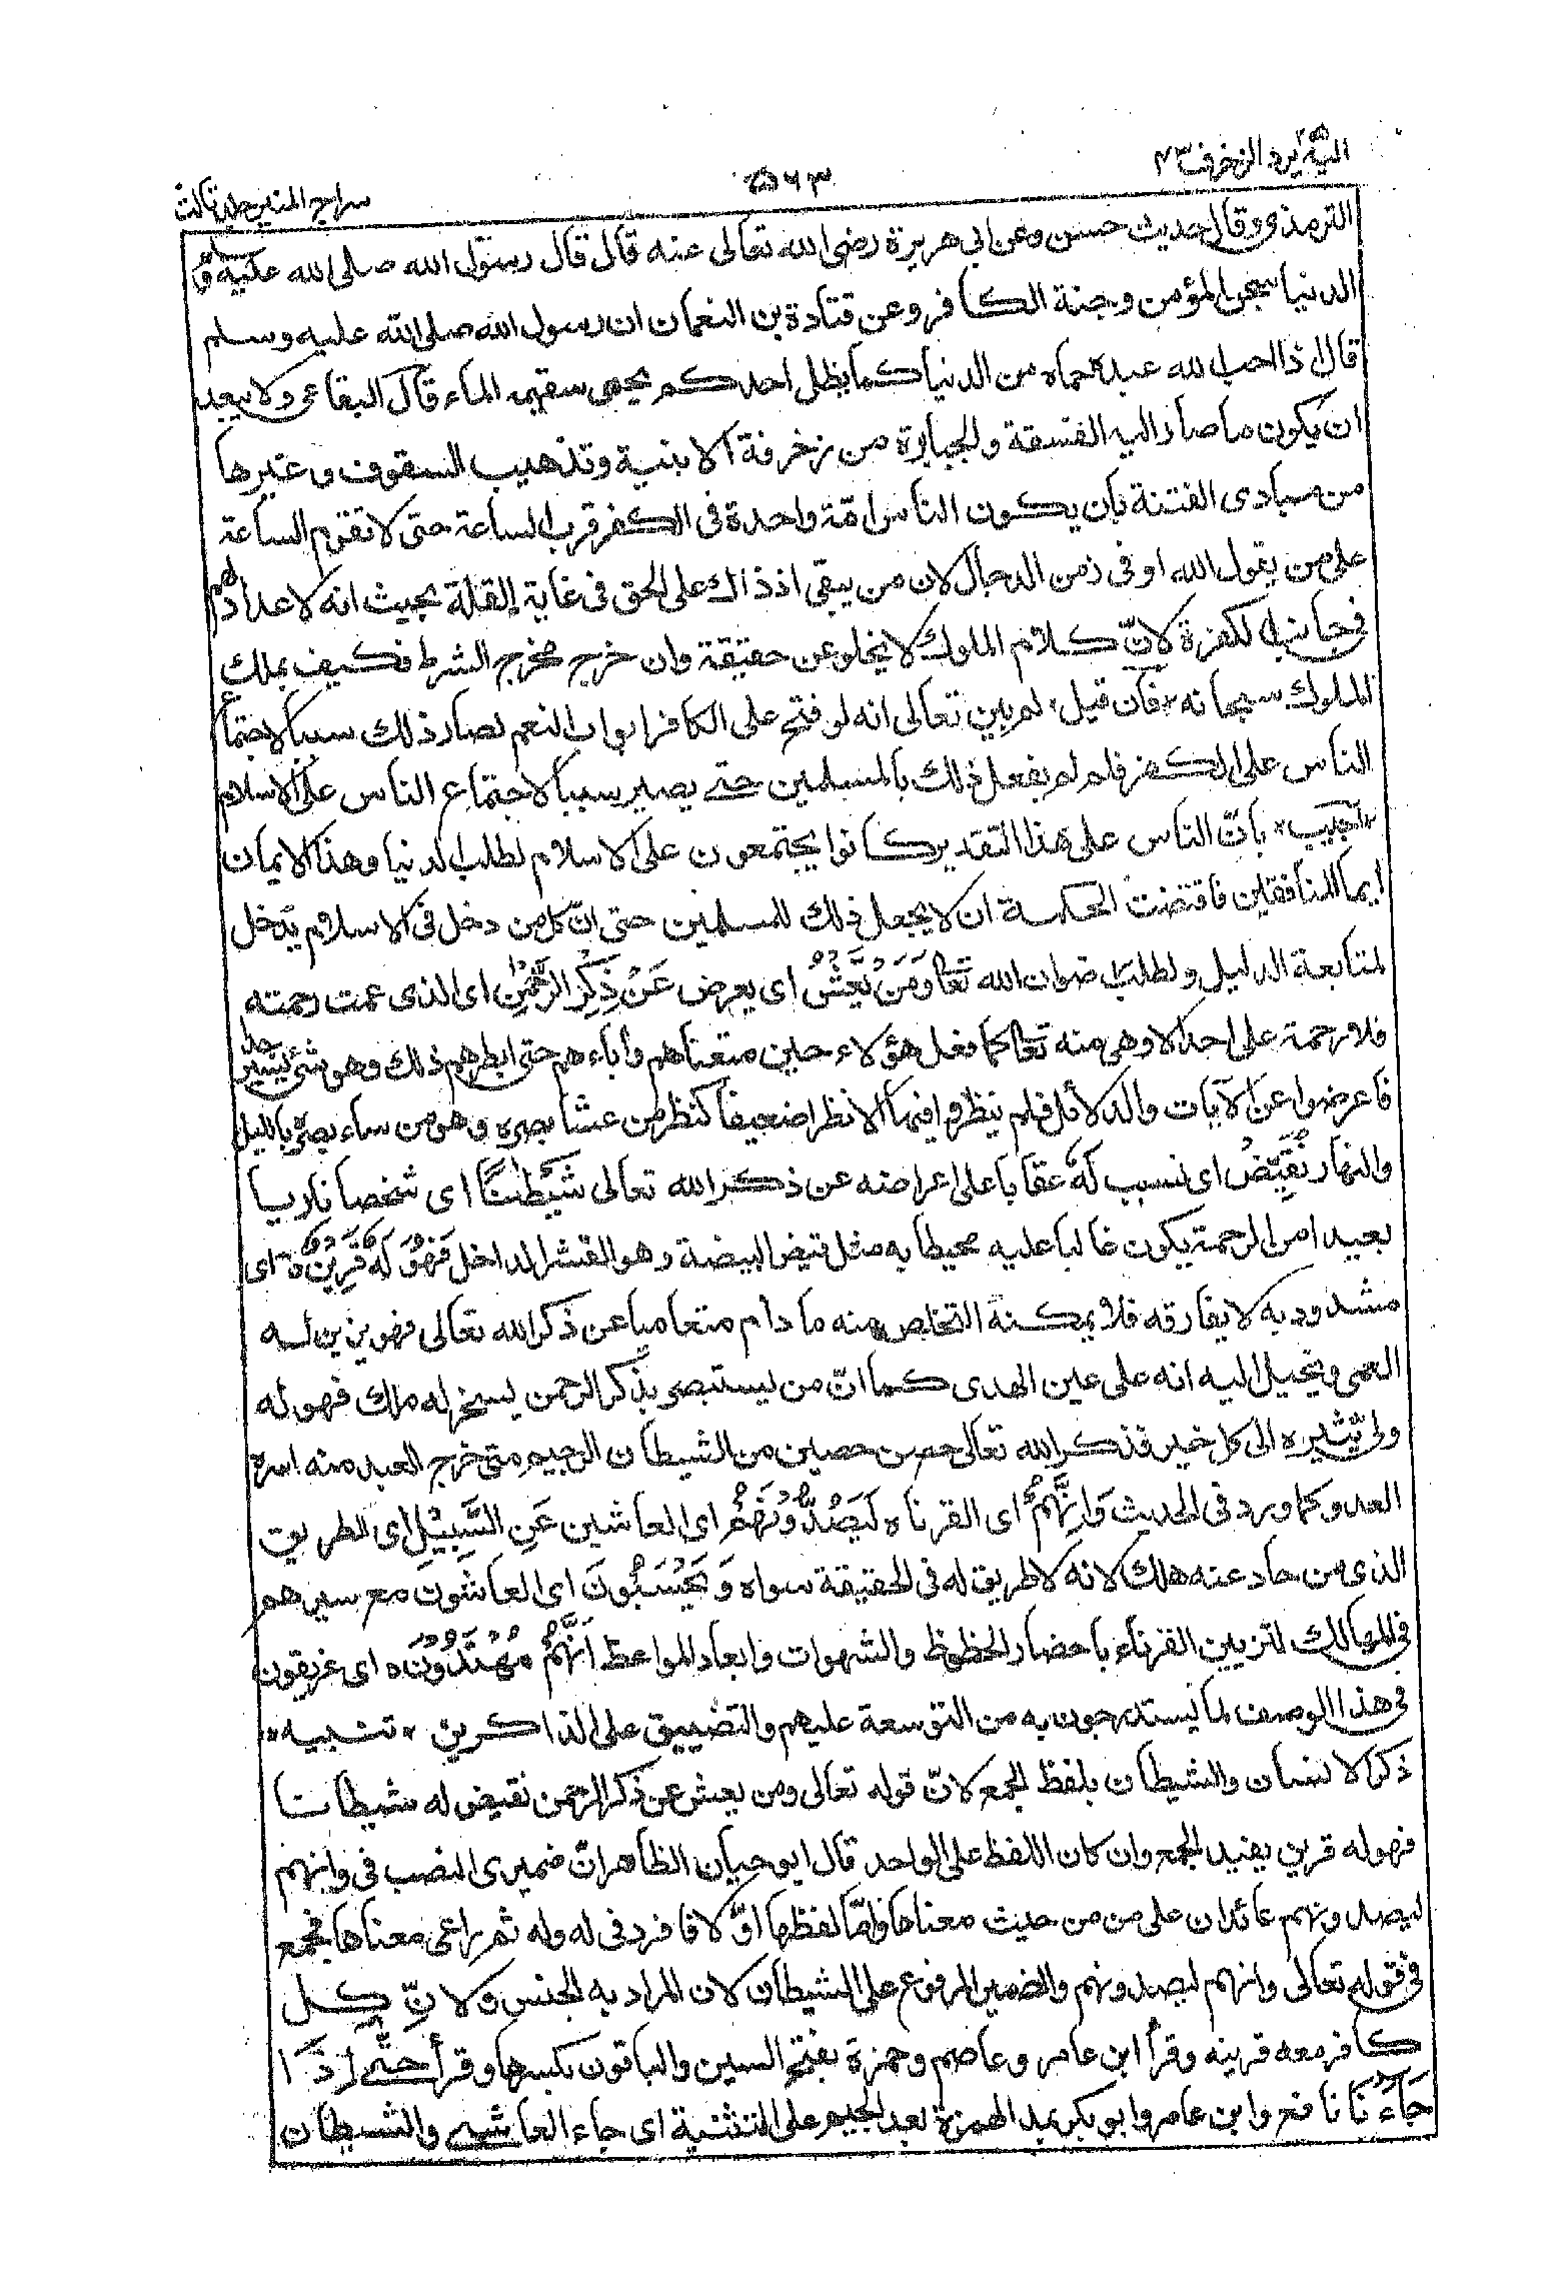 اليه يرد الزخرف ٤٣
٥٦٣
سراج المنير جلد ثالث
الترمذى وقال حديث حسن وعن ابى هريرة رضى الله تعالى عنه قال قال رسول الله صلى الله عليه وسلم
الدنيا سجن المؤمن وجنة الكافر وعن قتادة بن النعمان ان رسول الله صلى الله عليه وسلم
قال اذا احب الله عبدا حماه من الدنيا كما يظل احدكم يحمى سقيمه الماء قال البقاعى ولا يبعد
ان يكون ما صار اليه الفسقة والجبابرة من زخرفة الابنية وتذهيب السقوف وغيرها
من مبادى الفتنة بان يكون الناس امّة واحدة فى الكفر قرب الساعة حتى لا تقوم الساعة
على من يقول الله او فى زمن الدجال لان من يبقى اذ ذاك على الحق فى غاية القلة بحيث انه لا عداد لهم
فى جانب الكفرة لانّ كلام الملوك لا يخلو عن حقيقة وان خرج مخرج الشرط فكيف بملك
الملوك سبحانه * فان قيل * لم بين تعالى انه لو فتح على الكافر ابواب النعم لصار ذلك سببا لاجتماع
الناس على الكفر فلم لم يفعل ذلك بالمسلمين حتى يصير سببا لاجتماع الناس على الاسلام
* اجيب * بانّ الناس على هذا التقدير كانوا يجتمعون على الاسلام لطلب الدنيا وهذا الايمان
ايما المنافقين فاقتضت الحكمة ان لا يجعل ذلك للمسلمين حتى انّ كل من دخل فى الاسلام يدخل
لمتابعة الدليل ولطلب رضوان الله تعالى وَمَنْ يَّعْشُ اى يعرض عَنْ ذِكْرِ الرَّحْمٰنِ اى الذى عمت رحمته
فلا رحمة على احد الا وهى منه تعالى كما فعل هؤلاء حين متعناهم وآباءهم حتى ابطرهم ذلك وهو شئ يسير جدا
فاعرضوا عن الآيات والدلائل فلم ينظروا فيها الا نظرا ضعيفا كنظر من عشا بصره وهو من ساء بصره بالليل
والنهار نُقَيِّضْ اى نسبب لَهٗ عقابا على اعراضه عن ذكر الله تعالى شَيْطٰنًا اى شخصا ناريا
بعيدا من الرحمة يكون غالبا عليه محيطا به مثل قيض البيضة وهو القشر الداخل فَهُوَ لَهٗ قَرِيْنٌ اى
مشدود به لا يفارقه فلا يمكنه التخلص منه ما دام متعاميا عن ذكر الله تعالى فهو يزين له
العمى ويخيل اليه انه على عين الهدى كما انّ من يستبصر بذكر الرحمن يسخر له ملك فهو له
ولى يثيره الى كل خير فذكر الله تعالى حصن حصين من الشيطان الرجيم متى خرج العبد منه اسره
العدو كما ورد فى الحديث وَاِنَّهُمْ اى القرناء لَيَصُدُّوْنَهُمْ اى العاشين عَنِ السَّبِيْلِ اى الطريق
الذى من حاد عنه هلك لانه لا طريق له فى الحقيقة سواه وَيَحْسَبُوْنَ اى العاشون مع سيرهم
فى المهالك لتزيين القرناء باحضار الحظوظ والشهوات وابعاد المواعظ اَنَّهُمْ مُّهْتَدُوْنَ اى عريقون
فى هذا الوصف لما يستدرجون به من التوسعة عليهم والتضييق على الذاكرين * تنبيه *
ذكر الانسان والشيطان بلفظ الجمع لانّ قوله تعالى ومن يعش عن ذكر الرحمن نقيض له شيطانا
فهو له قرين يفيد الجمع وان كان اللفظ على الواحد قال ابو حيان الظاهر انّ ضميرى النصب فى وانهم
ليصدونهم عائدان على من من حيث معناها وامّا لفظها اوّلا فافرد فى له وله ثم راعى معناها فجمع
فى قوله تعالى وانهم ليصدونهم والضمير المرفوع على الشيطان لان المراد به الجنس ولانّ كل
كافر معه قرينه وقرأ ابن عامر وعاصم وحمزة بفتح السين والباقون بكسرها وقرأ حَتّٰى اِذَا
جَآءَنَا نافع وابن عامر وابو بكر بمد الهمزة بعد الجيم على التثنية اى جاء العاشى والشيطان